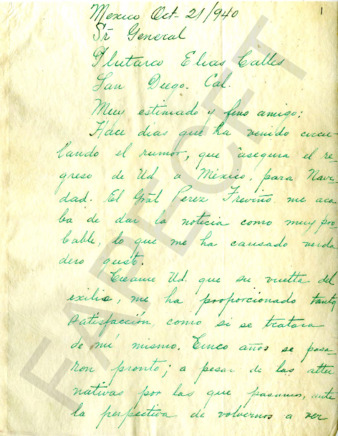 1
Mexico Oct. 21/940
Sr. General
Plutarco Elías Calles
San Diego. Cal.
Muy estimado y fino amigo:
Hace dias que ha venido circu-
lando el rumor, que asegura el re-
greso de Ud. a México, para Navi-
dad. El Gral Perez Treviño me aca-
ba de dar la noticia como muy pro-
bable, lo que me ha causado verda-
dero gusto.
Creame Ud. que su vuelta del
exilio, me ha proporcionado tanta
satisfacción, como si se tratara
de mí mismo. Cinco años se pasa-
ron pronto; a pesar de las alter-
nativas por las que pasamos, ante
la perspectiva de volvernos a ver
FAPECFT